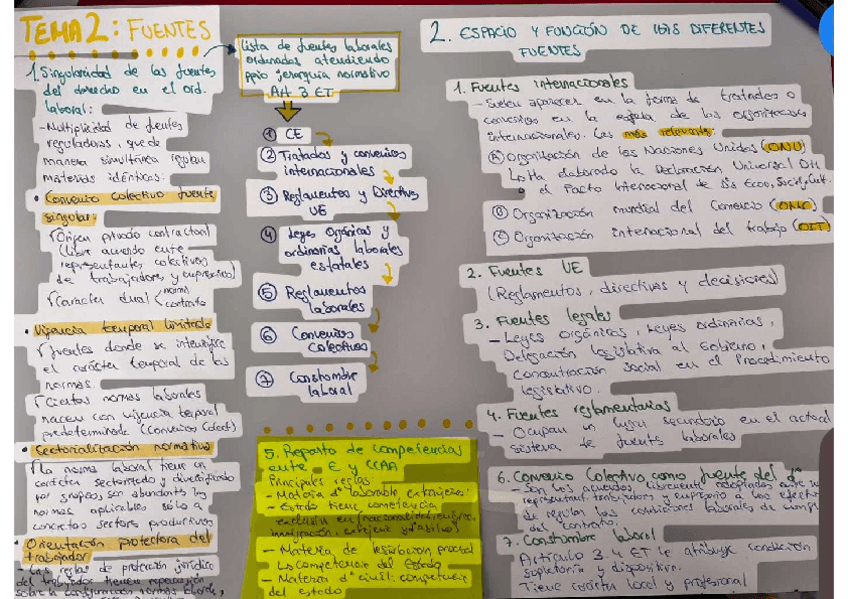 TEMA 2: FUENTES
1. Singularidad de las fuentes
del derecho en el ord.
laboral:
- Multiplicidad de fuentes
reguladoras, que de
manera simultánea regulan
materias idénticas.
• Convenio colectivo fuente
singular:
Origen privado contractual
(libre acuerdo entre
representantes colectivos
de trabajadores y empresarios)
Carácter dual norma
contrato
• Vigencia temporal limitada
fuentes donde se intensifica
el carácter temporal de las
normas.
Ciertas normas laborales
nacen con vigencia temporal
predeterminada (Convenios Colect)
• Sectorialización normativa
La norma laboral tiene un
carácter sectorizado y diversificado
por grupos son abundantes las
normas aplicables sólo a
concretos sectores productivos
• Orientación protectora del
trabajador
- Las reglas de protección jurídica
del trabajador tienen repercusión
sobre la configuración normas laborales,
Lista de fuentes laborales
ordenadas atendiendo
ppio jerarquía normativa
Art 3 ET
1 CE
2 Tratados y convenios
internacionales
3 Reglamentos y Directivas
UE
4 Leyes Orgánicas y
ordinarias laborales
estatales
5 Reglamentos
laborales
6 Convenios
colectivos
7 Constumbre
laboral
5. Reparto de competencias
entre E y CCAA
Principales reglas:
- Materia dº laborable extranjeros:
- Estado tiene competencia
exclusiva en (nacionalidad
inmigración, extranjer y dº asilo)
- Materia de legislación procesal
Lo competencia del Estado
- Materia dº civil: competencia
del estado
2. ESPACIO Y FUNCIÓN DE LAS DIFERENTES
FUENTES
1. Fuentes internacionales
- Suelen aparecer en la forma de tratados o
convenios en la esfera de las organizaciones
internacionales. Las más relevantes:
A Organización de las Naciones Unidas (ONU)
Lo Ha elaborado la Declaración Universal DH
o el Pacto Internacional de Ds Econ, Soc y Cult.
B Organización mundial del Comercio (OMC)
C Organización internacional del trabajo (OIT)
2. Fuentes UE
(Reglamentos, directivas y decisiones)
3. Fuentes legales
- Leyes orgánicas, Leyes ordinarias,
Delegación legislativa al Gobierno,
Concentración social en el Procedimiento
legislativo.
4. Fuentes reglamentarias
- Ocupan un lugar secundario en el actual
sistema de fuents laborales
6. Convenio Colectivo como fuente del dº
- Son los acuerdos libremente adoptados entre
representant. trabajadores y empresario a los efectos
de regular las condiciones laborales de
del contrato.
7. Constumbre laboral
Artículo 3.4 ET le atribuye condición
supletoria y dispositiva.
Tiene carácter local y profesional